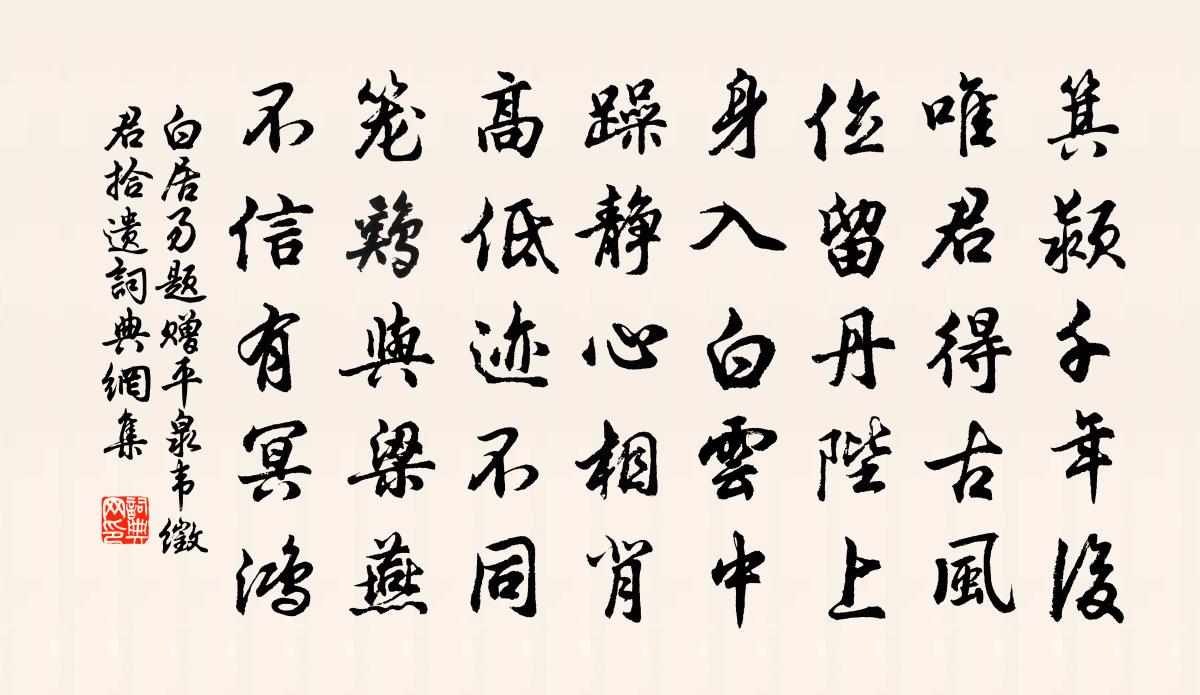 箕潁千年後
唯君得古風
位留丹陛上
身入白雲中
躁靜心相背
高低迹不同
笼鷄與梁燕
不信有冥鸿
白居易題贈平泉韦徵
君拾遺詞典網集
詞典
网印